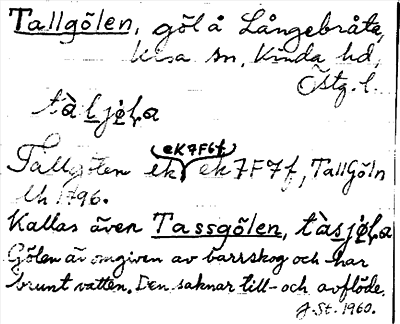 Tallgölen, göl å Långebråta,
Kisa sn, Kinda hd,
Östg. l.
tàljø̨la
ek7F6f
Tallgölen ek ek7F7f, TallGöln
Uh 1796.
Kallas även Tassgölen, tàsjø̨la
Gölen är omgiven av barrskog och har
brunt vatten. Den saknar till- och avflöde.
J. St. 1960.